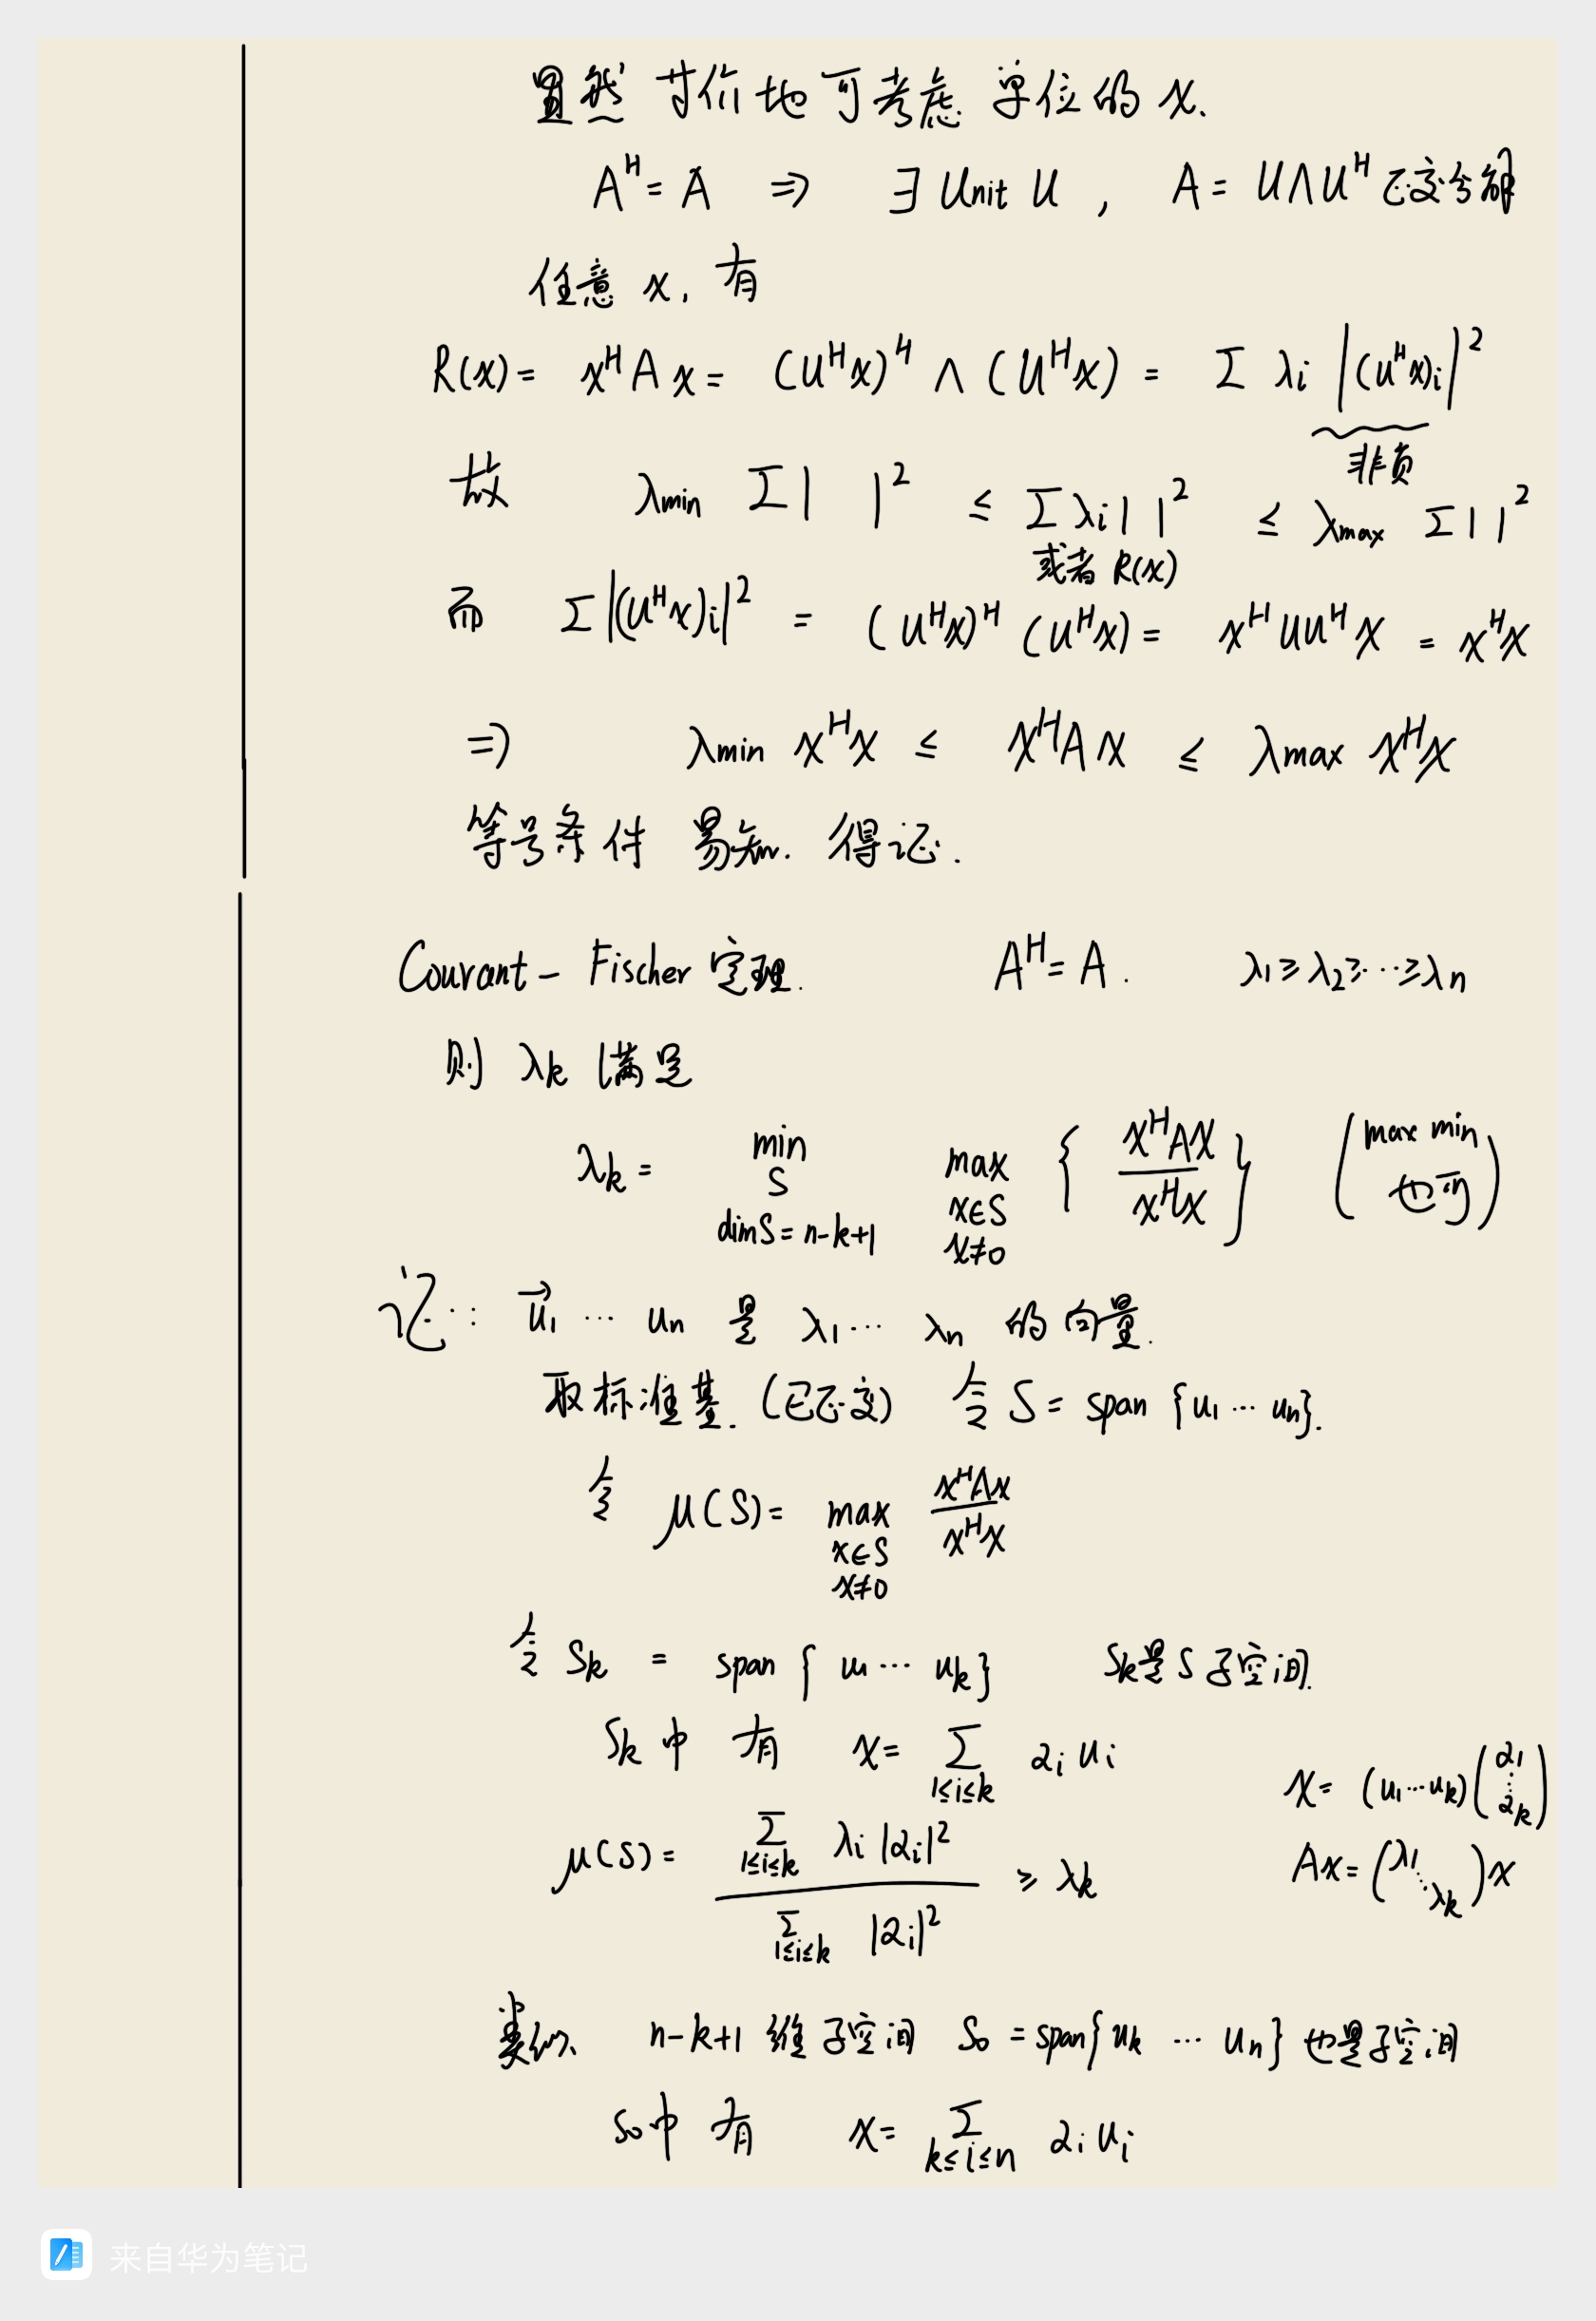 显然 等价地可考虑 单位的 x.
A^H = A ⇒ ∃ Unit U , A = UΛU^H 正交分解
任意 x, 有
R(x) = x^H A x = (U^H x)^H Λ (U^H x) = Σ λi |(U^H x)i|^2
非负
故 λmin Σ| |^2 ≤ Σ λi | |^2 ≤ λmax Σ| |^2
或者 R(x)
而 Σ|(U^H x)i|^2 = (U^H x)^H (U^H x) = x^H U U^H x = x^H x
⇒ λmin x^H x ≤ x^H A x ≤ λmax x^H x
等号条件 易知. 得证.
Courant - Fischer 定理. A^H = A. λ1 ≥ λ2 ≥ ··· ≥ λn
则 λk 满足
λk = min S dim S = n-k+1 max x∈S x≠0 { x^H A x / x^H x } ( max min 也可 )
证: u⃗1 ··· un 是 λ1 ··· λn 的向量.
取标准基. (已正交) 令 S = span {u1 ··· un}.
令 μ(S) = max x∈S x≠0 x^H A x / x^H x
令 Sk = span { u1 ··· uk } Sk是 S 子空间.
Sk 中 有 x = Σ 1≤i≤k αi ui
x = (u1 ··· uk) (α1 ⋮ αk)
μ(S) = Σ 1≤i≤k λi |αi|^2 / Σ 1≤i≤k |αi|^2 ≥ λk
Ax = (λ1 ⋱ λk) x
类似、 n-k+1 维子空间 S0 = span{uk ··· un} 也是子空间
S0中 有 x = Σ k≤i≤n αi ui
来自华为笔记